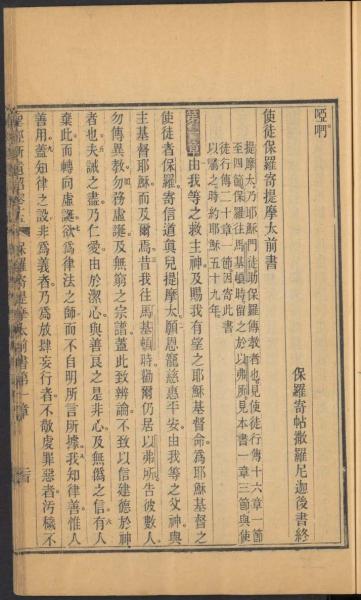 啞啊
保羅寄帖撒羅尼迦後書終
使徒保羅寄提摩太前書
提摩太乃耶穌門徒助保羅傳教者也見使徒行傳十六章一節
至四節保羅往馬基頓時留之於以弗所見本書一章三節與使
徒行傳二十章一二節因寄此書
以囑之時約耶穌五十九年
由我等之救主神及賜我有望之耶穌基督命爲耶穌基督之
使徒者保羅寄信道真兒提摩太願恩寵慈惠平安由我等之父神與
主基督耶穌而及爾焉昔我往馬基頓時勸爾仍居以弗所告彼數人
勿傳異教勿務虛誕及無窮之宗譜蓋此致辨論不致以信建德於神
者也夫誡之蓋乃仁愛由於潔心與善良之是非心及無僞之信有人
棄此而轉向虛誕欲爲律法之師而不自明所言所據我知律善惟人
善用蓋知律之設非爲義者乃爲放肆妄行者不敬虔罪惡者污穢不
保羅寄提摩太前書第一章